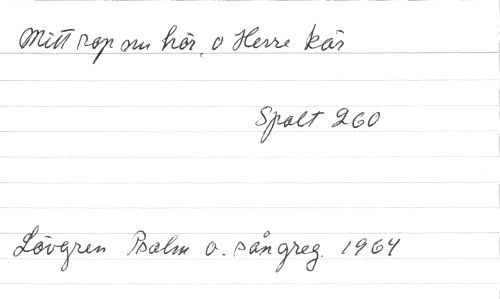 Mitt rop nu hör, o Herre kär
Spalt 260
Lövgren Psalm o. sångreg. 1964